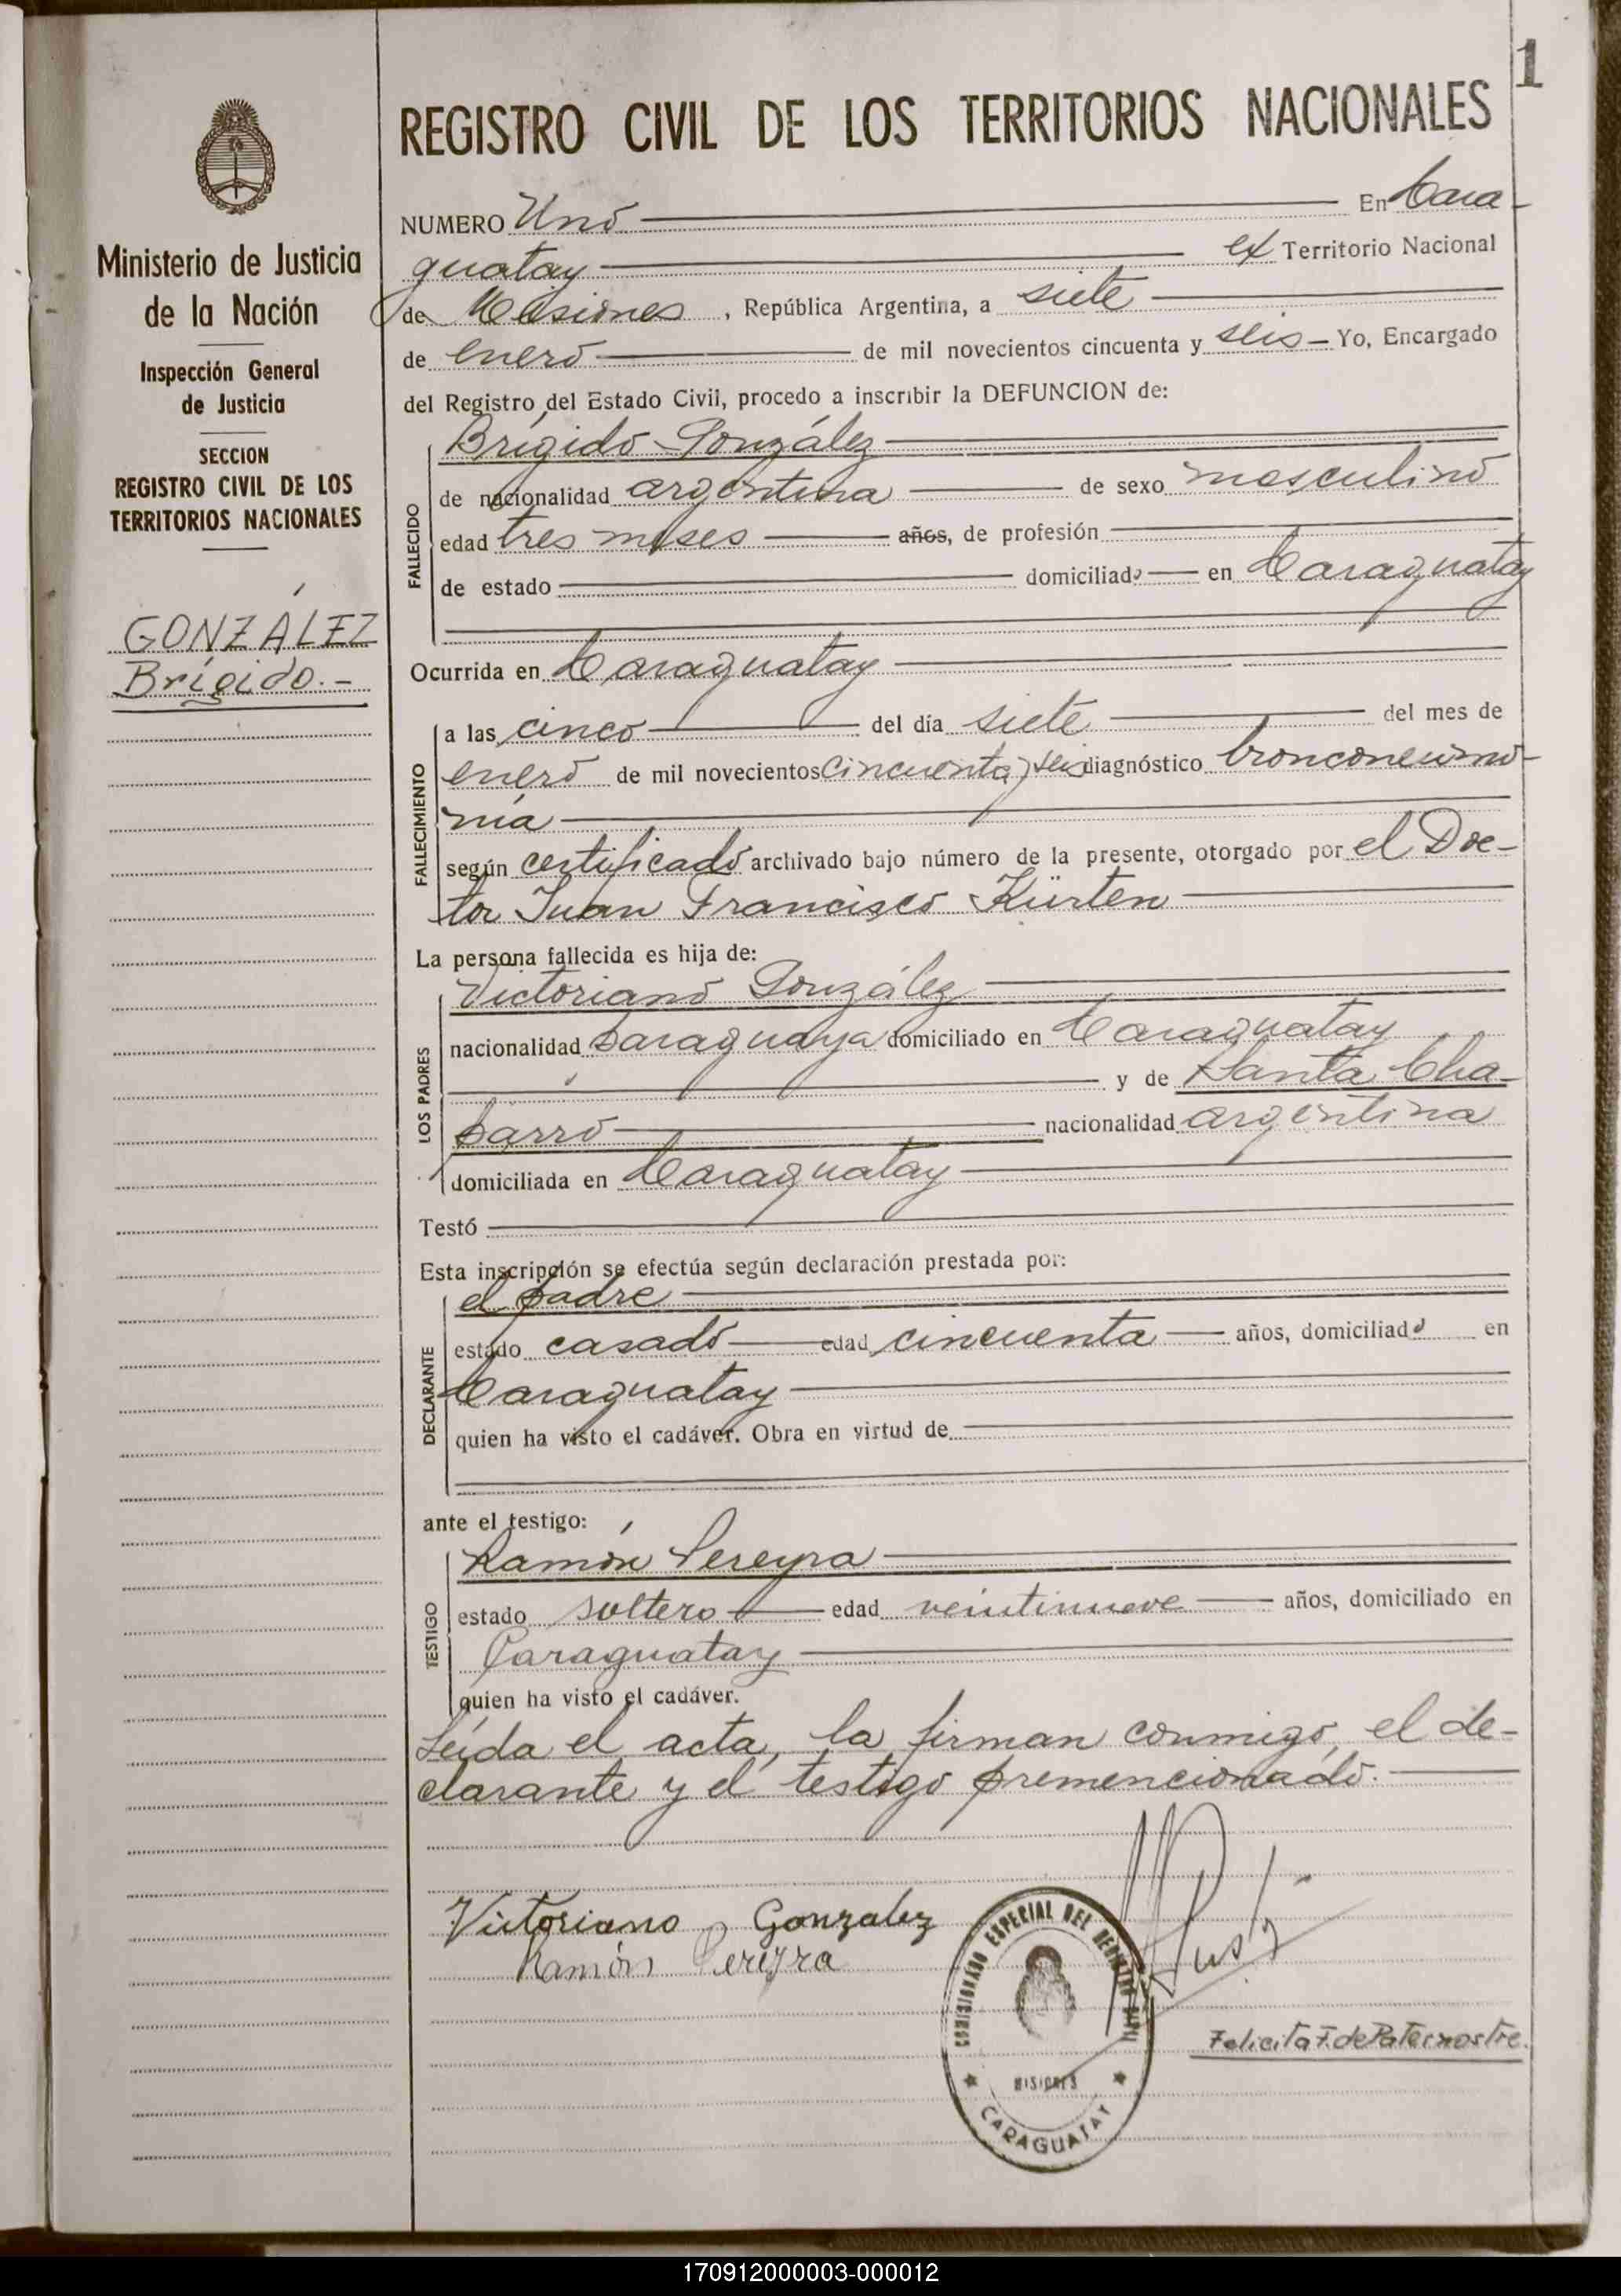 1
REGISTRO CIVIL DE LOS TERRITORIOS NACIONALES
Ministerio de Justicia
de la Nación
Inspección General
de Justicia
SECCION
REGISTRO CIVIL DE LOS
TERRITORIOS NACIONALES
GONZÁLEZ
Brígido.-
NUMERO Uno En Cara-
guatay ex Territorio Nacional
de Misiones, República Argentina, a siete
de enero de mil novecientos cincuenta y seis Yo, Encargado
del Registro del Estado Civil, procedo a inscribir la DEFUNCION de:
FALLECIDO
Brígido González
de nacionalidad argentina de sexo masculino
edad tres meses años, de profesión
de estado domiciliado en Caraguatay
Ocurrida en Caraguatay
FALLECIMIENTO
a las cinco del día siete del mes de
enero de mil novecientos cincuenta y seis diagnóstico bronconeumo-
nía
según certificado archivado bajo número de la presente, otorgado por el Doc-
tor Juan Francisco Kürten
La persona fallecida es hija de:
LOS PADRES
Victoriano González
nacionalidad paraguaya domiciliado en Caraguatay
y de Santa Cha-
parro nacionalidad argentina
domiciliada en Caraguatay
Testó
Esta inscripción se efectúa según declaración prestada por:
DECLARANTE
el padre
estado casado edad cincuenta años, domiciliado en
Caraguatay
quien ha visto el cadáver. Obra en virtud de
ante el testigo:
TESTIGO
Ramón Pereyra
estado soltero edad veintinueve años, domiciliado en
Caraguatay
quien ha visto el cadáver.
Leída el acta, la firman conmigo, el de-
clarante y el testigo premencionado.
Victoriano Gonzalez
Ramón Pereyra
COMISIONADO ESPECIAL DEL
MISIONES
CARAGUATAY
Felicita F. de Paternostre.
170912000003-000012